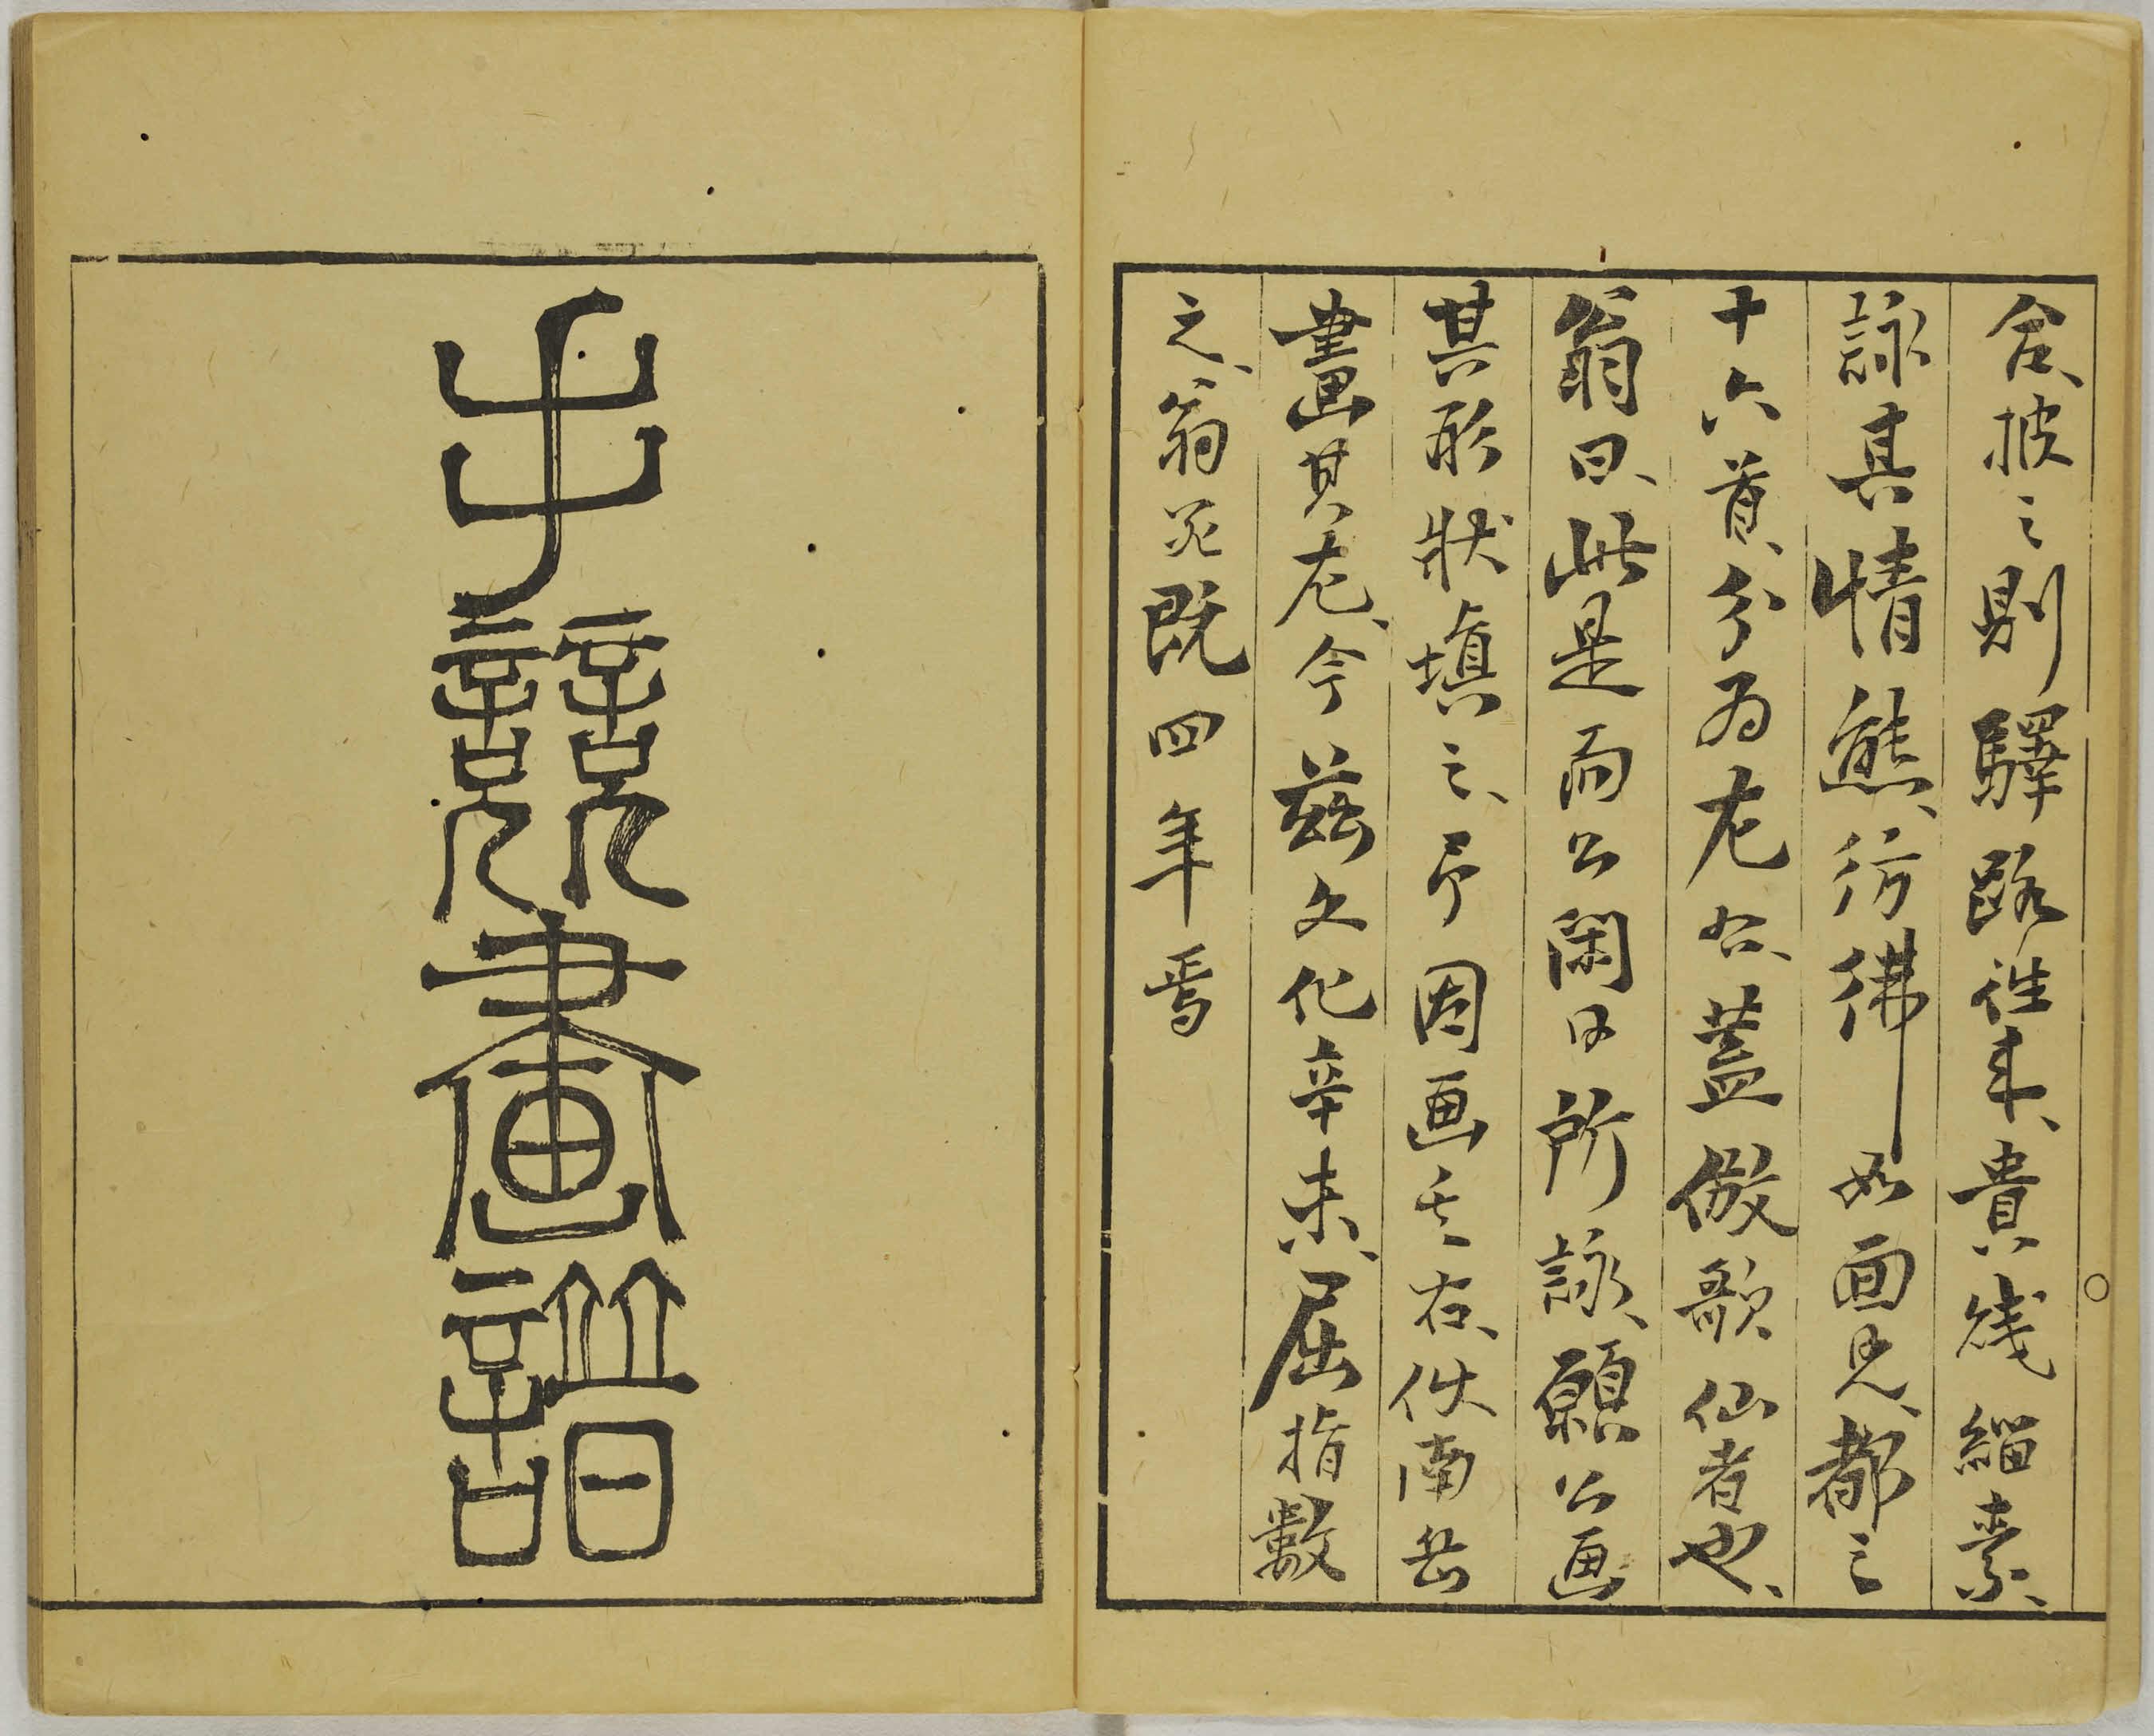 舍、披之則驛路往来、貴賤緇素、
詠其情態、彷彿如面見、都三
十六首、分為左右、蓋倣歌仙者也、
翁曰、此是而公閑日所詠、願公画
其形状填之、予因画其右、佚南岳
畫其左、今茲文化辛未、屈指數
之、翁死既四年焉
手競畫譜